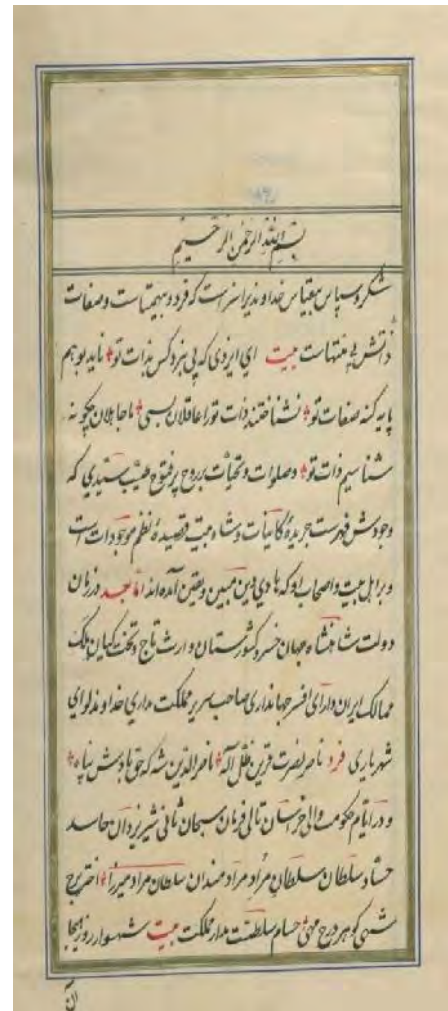 بسم الله الرحمن الرحیم
شکر و سپاس بیقیاس خداوندیرا سزاست که فرد و بیهمتاست و صفات
ذاتش بی منتهاست بیت ای ایزدی که پی نبرد کس بذات تو ناید بوهم
پایه کنه صفات تو نشناختند ذات تو را عاقلان بسی ما جاهلان چگونه
شناسیم ذات تو و صلوات و تحیات بر روح پر فتوح طیب سیدی که
وجودش فهرست جریدهٔ کاینات و شاه بیت قصیدهٔ نظم موجودات است
و بر اهل بیت و اصحاب او که هادی دین مبین و یقین آمده اند اما بعد در زمان
دولت شاهنشاه جهان خسرو کشورستان وارث تاج و تخت کیان ملک
ممالک ایران دارای افسر جهانداری صاحب سریر مملکت مداری خداوند لوای
شهریاری فرد ناصر نصرت قرین ظل اله ناصرالدین شه که حق بادش پناه
و در ایام حکومت والی خراسان تالی فرمان سبحان ثانی شیر یزدان حاسد
حساد سلطان سلطان مراد مراد مندان سلطان مراد میرزا اختر برج
شهی گوهر درج مهی حسام سلطنت مدار مملکت بیت شهسوار روز هیجا
آن